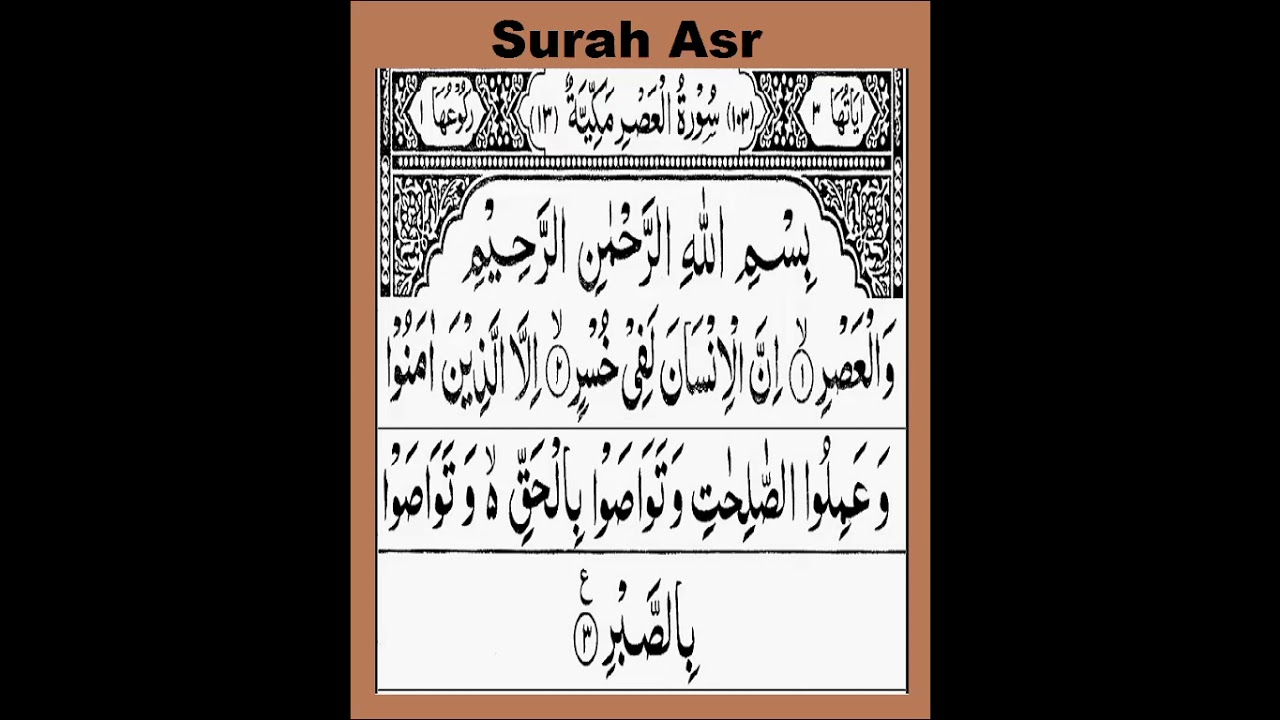 Surah Asr
اٰيَاتُهَا ٣ (١٠٣) سُوْرَةُ الْعَصْرِ مَكِّيَّةٌ (١٣) رُكُوْعُهَا ١
بِسْمِ اللّٰهِ الرَّحْمٰنِ الرَّحِيْمِ
وَالْعَصْرِ ۙ‏﴿١﴾ اِنَّ الْاِنْسَانَ لَفِیْ خُسْرٍ ۙ‏﴿٢﴾ اِلَّا الَّذِيْنَ اٰمَنُوْا
وَ عَمِلُوا الصّٰلِحٰتِ وَ تَوَاصَوْا بِالْحَقِّ ۙ۬ وَ تَوَاصَوْا
بِالصَّبْرِ ﴿٣﴾ ع